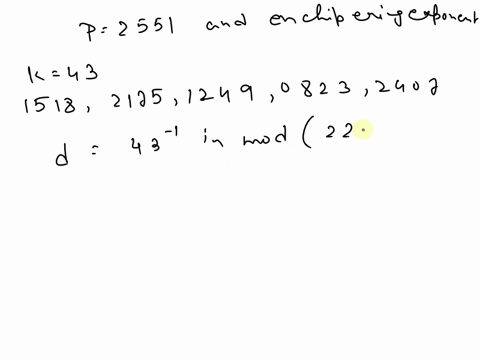 P = 2551 and enchipering exponent
K = 43
1518, 2125, 1249, 0823, 2407
d = 43⁻¹ in mod (22